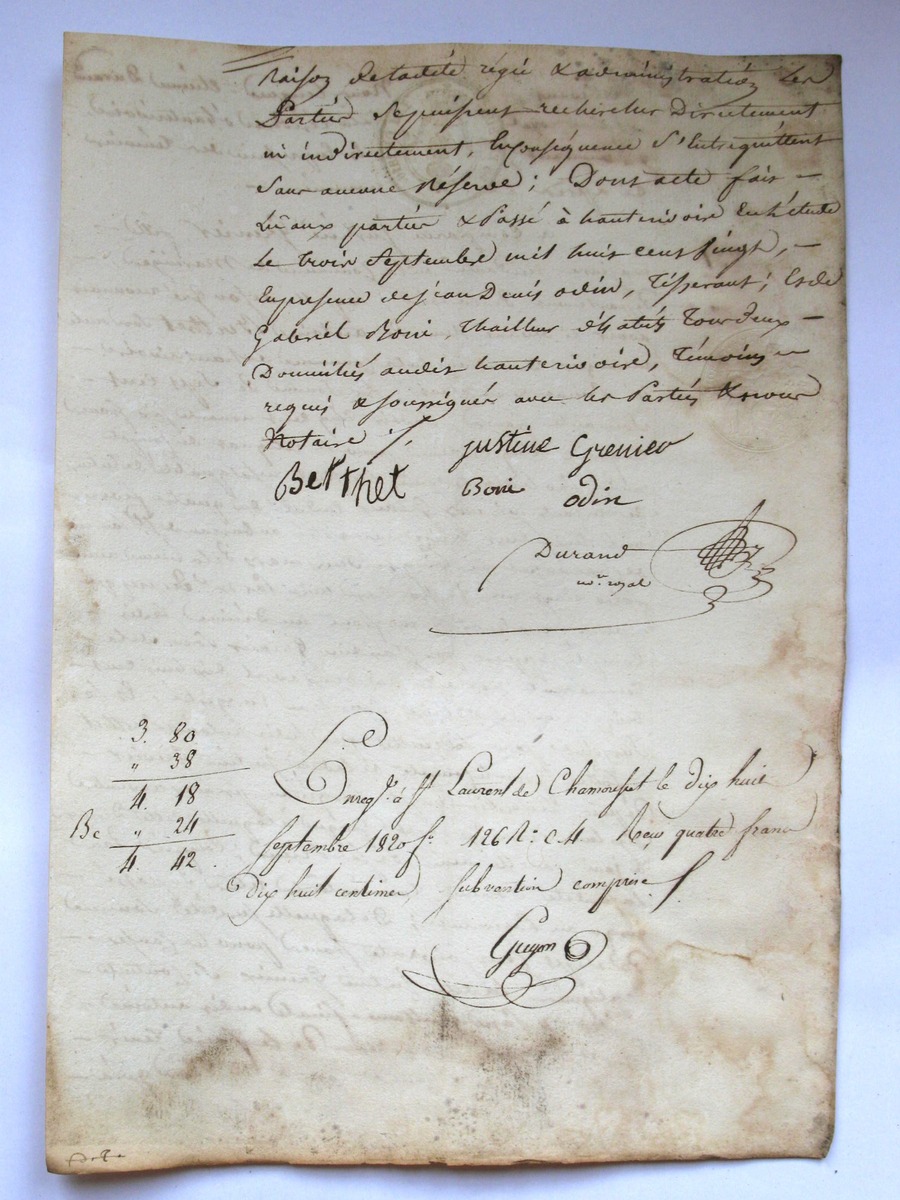 raison de ladite régie & administration, Les
Parties se puissent rechercher Directement
ni indirectement, En conséquence S'Entrequittent
Sans aucune Réserve; Dont acte fait —
Lu aux parties & Passé à hauterivoire En l'étude
Le trois Septembre mil huit cent vingt, —
En presence de jean Denis odin, Tisserant; Et de
Gabriel Boni, Thailleur d'habits Tous deux —
Domiciliés audit hauterivoire, Témoins
requis & soussignés avec les Parties & nous
Notaire ./.
Berthet justine Grenier
Boni odin
Durand
nre royal
3. 80
" 38
4. 18
Be " 24
4. 42.
Enregé. à St Laurent de Chamousset le dix huit
Septembre 1820 fo. 126 Ro. c. 4 Reçu quatre francs
Dix huit centimes, subvention comprise
Guyon